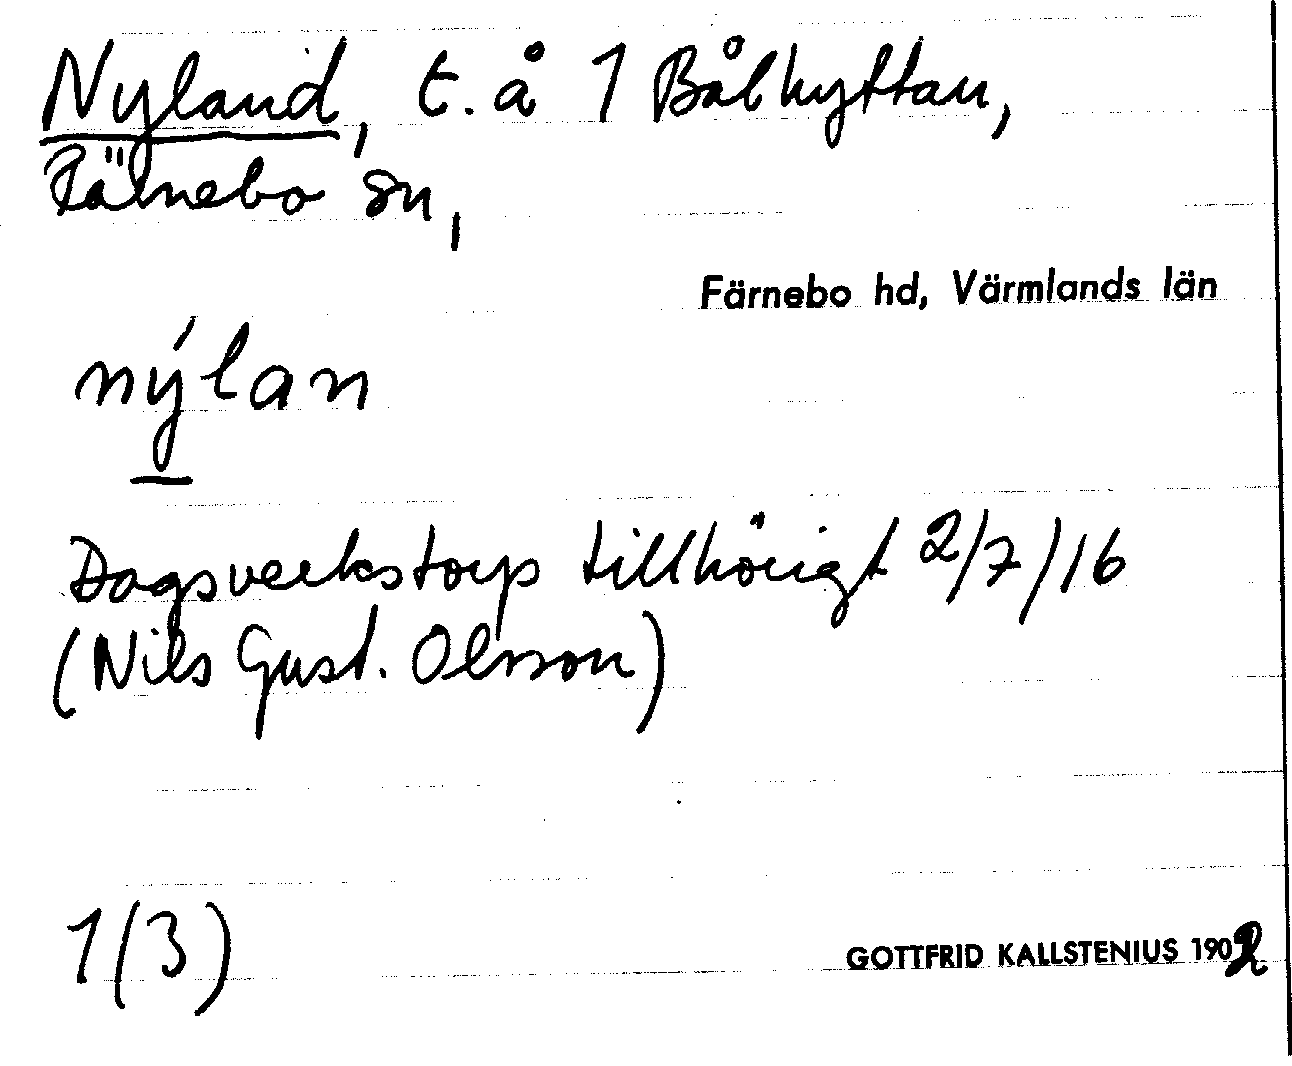 Nyland, t. å 1 Bålhyttan,
Färnebo sn,
Färnebo hd, Värmlands län
nýlan
Dagsverkstorp tillhörigt 2/7/16
(Nils Gust. Olsson)
1(3)
GOTTFRID KALLSTENIUS 1902